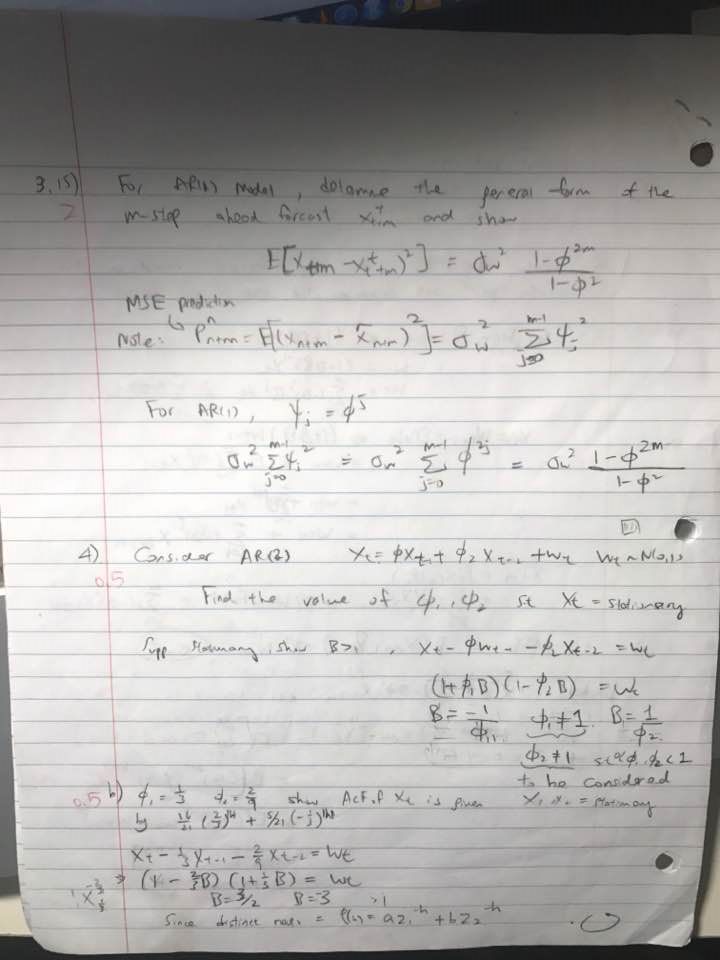 3.15) For AR(1) Model, determine the general form of the
2 m-step ahead forcast x^t_{t+m} and show
E[(x_{t+m} - x^t_{t+m})^2] = σ_w^2 (1-φ^{2m})/(1-φ^2)
MSE prediction
Note: P^n_{n+m} = E[(x_{n+m} - x̃_{n+m})^2] = σ_w^2 Σ_{j=0}^{m-1} ψ_j^2
For AR(1), ψ_j = φ^j
σ_w^2 Σ_{j=0}^{m-1} ψ_j^2 = σ_w^2 Σ_{j=0}^{m-1} φ^{2j} = σ_w^2 (1-φ^{2m})/(1-φ^2)
4) Consider AR(2) X_t = φX_{t-1} + φ_2 X_{t-2} + w_t w_t ~ N(0,1)
0.5
Find the value of φ_1, φ_2 st X_t = stationary
Supp stationary, show B>1, X_t - φW_{t-} - φ_2 X_{t-2} = w_t
(1+φ_1B)(1-φ_2B) = w_t
B = -1/φ_1, φ_1 ≠ 1. B = 1/φ_2
φ_2 ≠ 1 φ_1, φ_2 < 1
to be considered
= stationary
0.5 b) φ_1 = 1/3 φ_2 = 2/9 show ACF of X_t is given
by 16/21 (2/3)^{|h|} + 5/21 (-1/3)^{|h|}
X_t - 1/3 X_{t-1} - 2/9 X_{t-2} = w_t
⇒ (1 - 2/3B)(1 + 1/3B) = w_t
B = 3/2 B = -3 >1
Since distinct roots = ρ(h) = az_1^{-h} + bz_2^{-h}